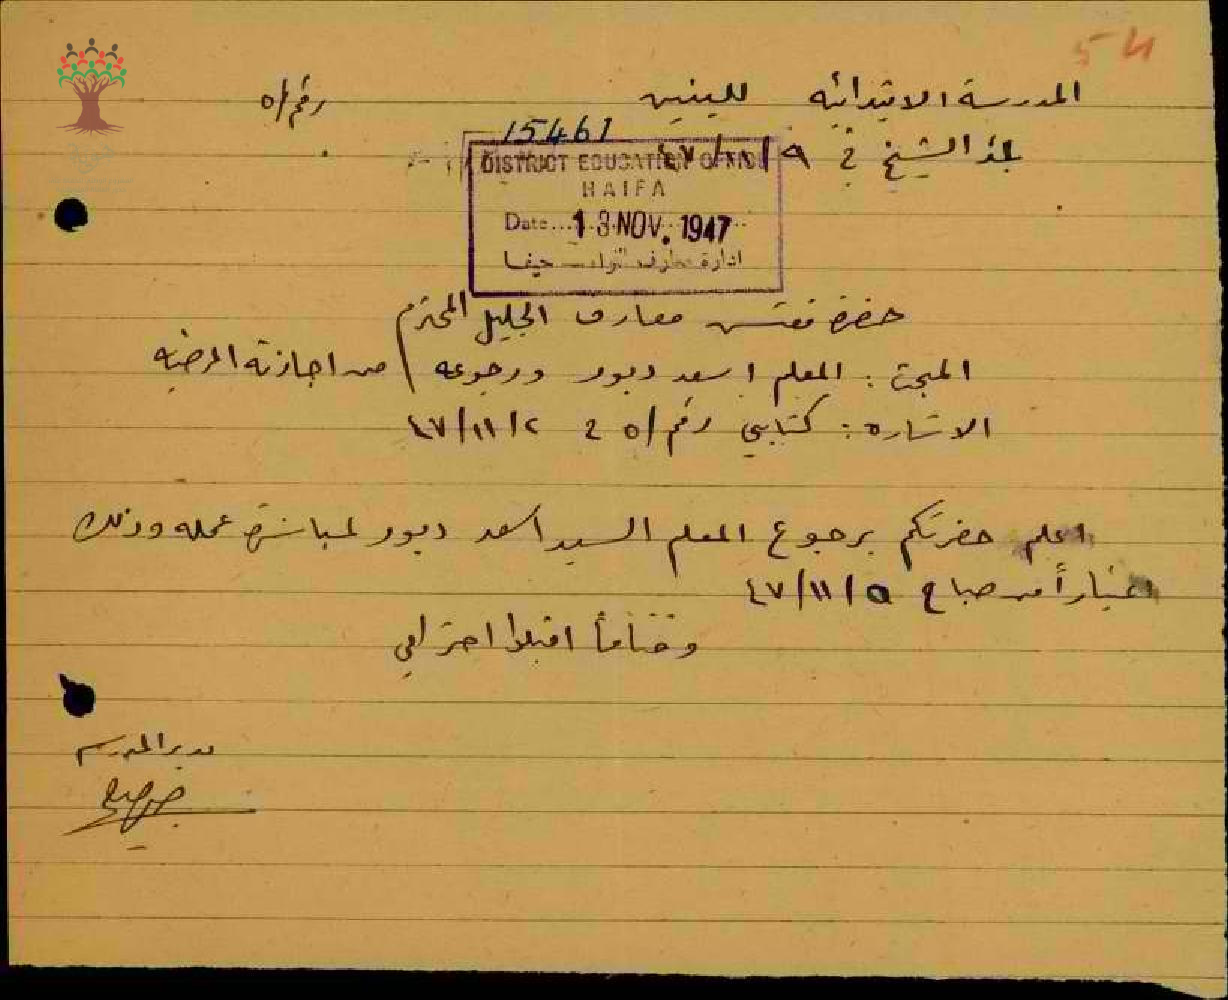 54
المدرسة الابتدائيه للبنين رقم/٥
بلد الشيخ في ٩/١١/٤٧
15461
DISTRICT EDUCATION OFFICE
HAIFA
Date... 13 NOV. 1947
ادارة معارف لواء حيفا
حضرة مفتش معارف الجليل المحترم
المبحث : المعلم اسعد دبور ورجوعه من اجازته المرضيه
الاشاره : كتابي رقم/٥ في ٢/١١/٤٧
اعلم حضرتكم برجوع المعلم السيد اسعد دبور لمباشرة عمله وذلك
اعتباراً من صباح ٥/١١/٤٧
وختاماً اقبلوا احترامي
مدير المدرسه